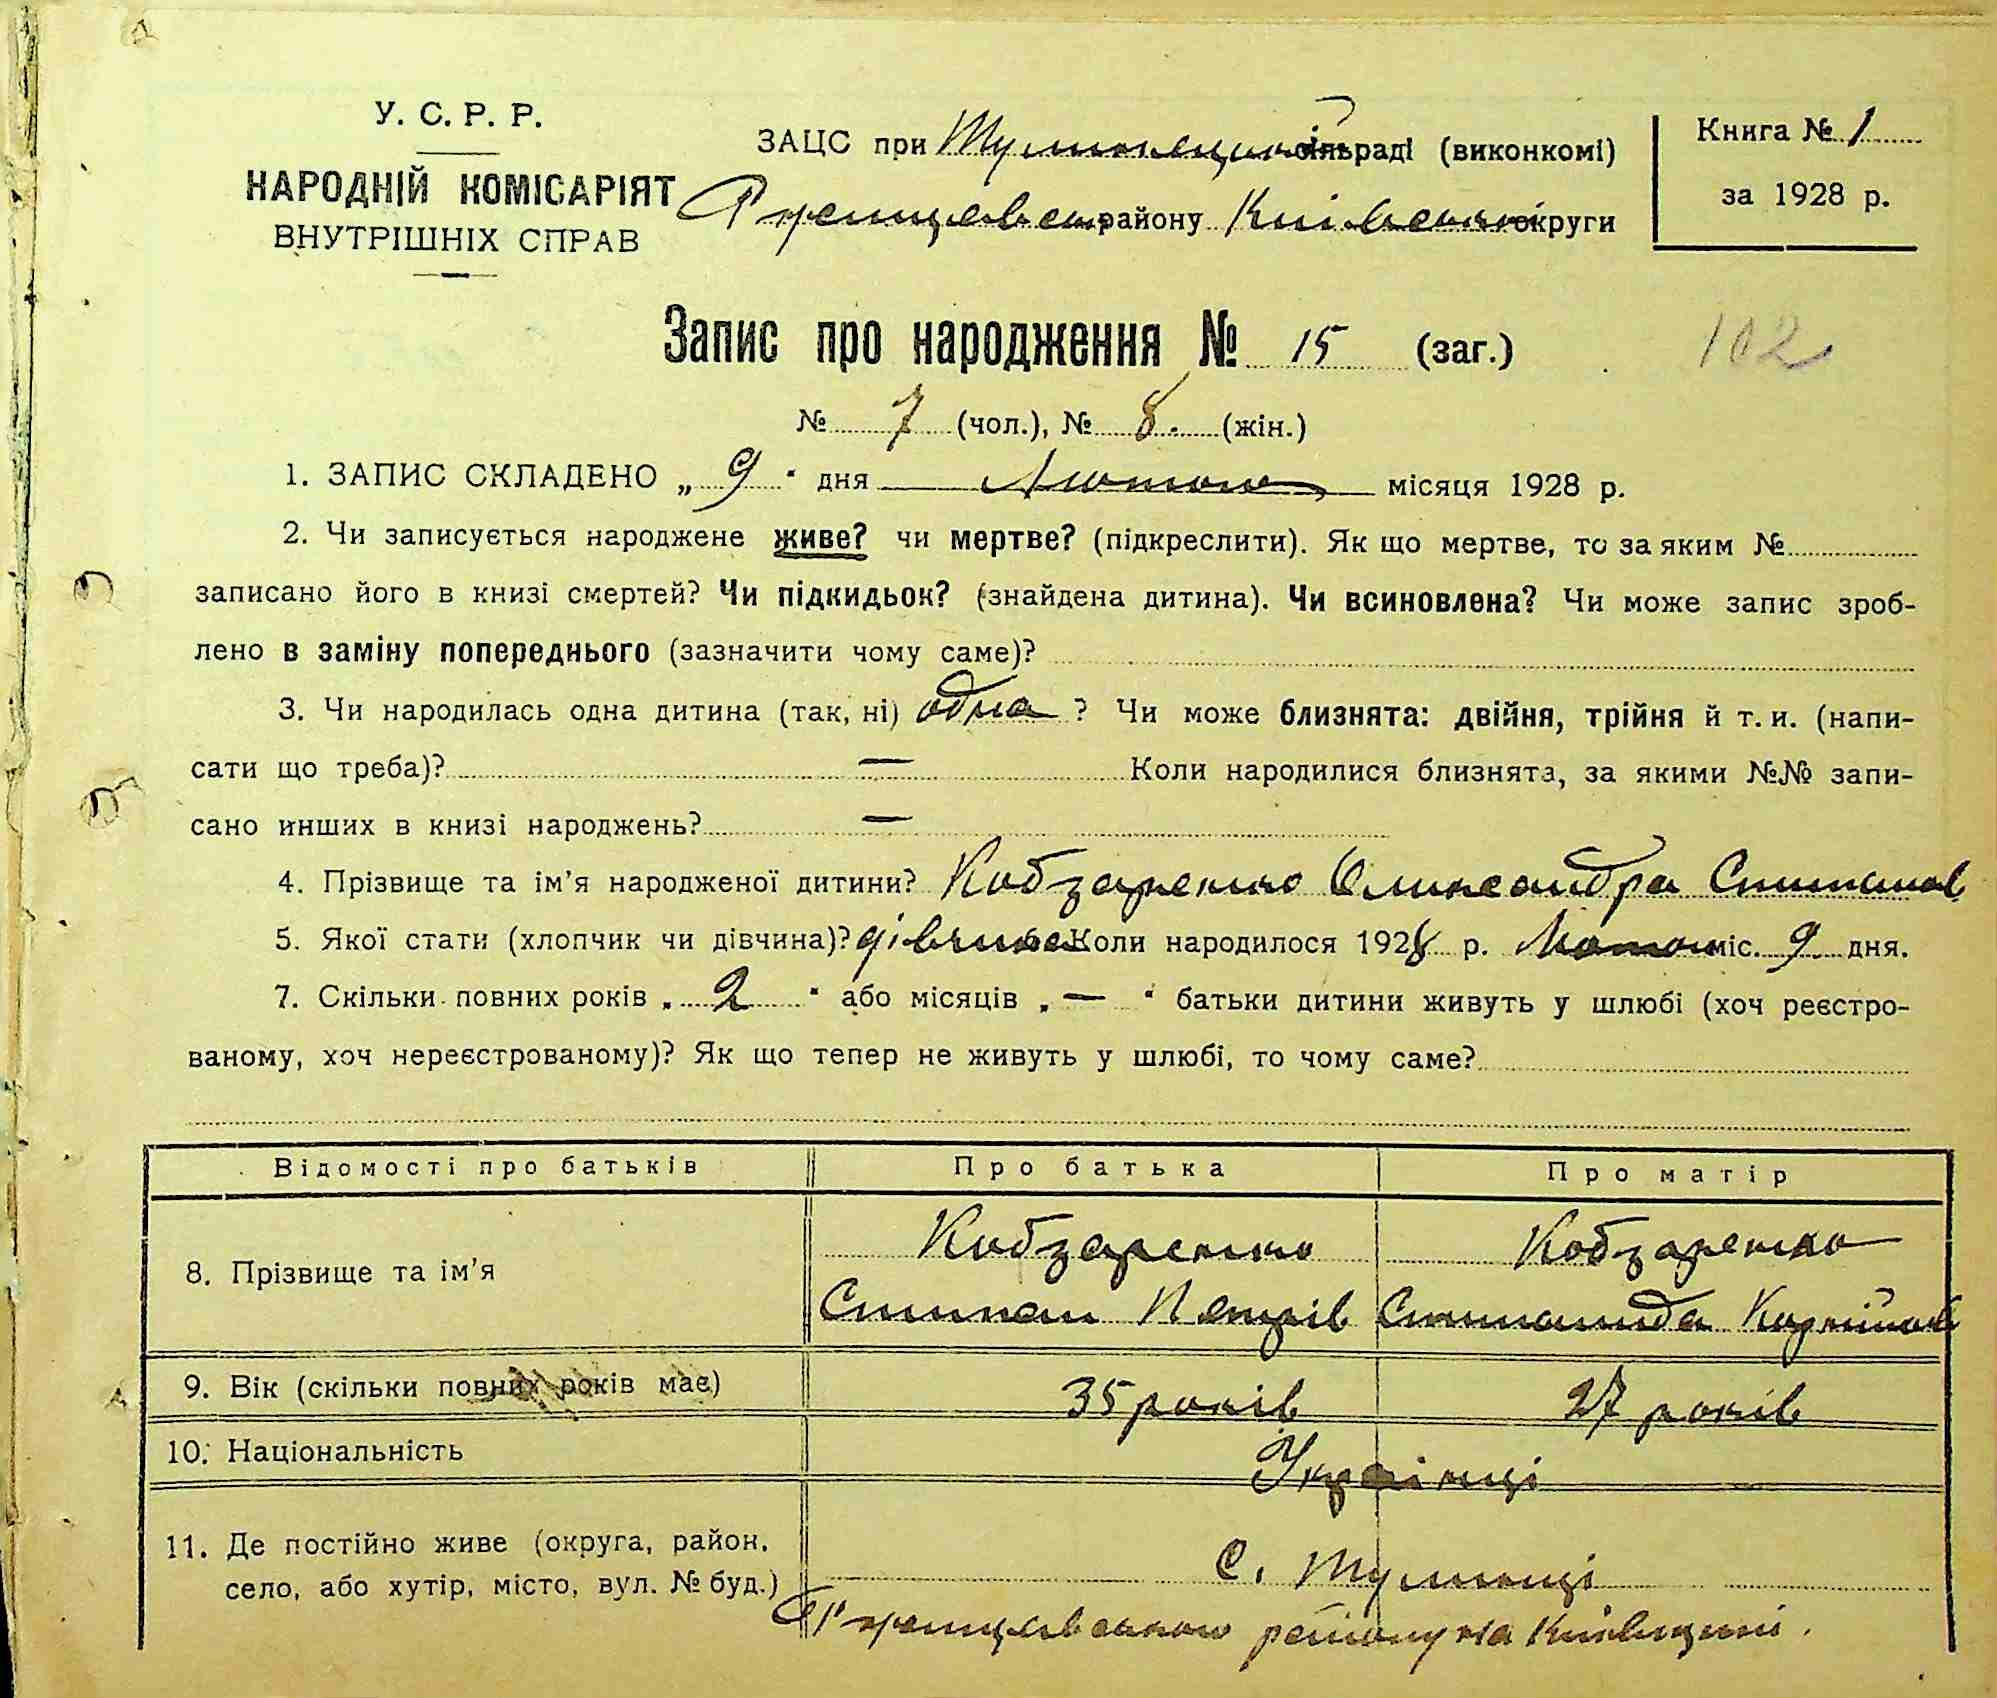 У. С. Р. Р.
НАРОДНІЙ КОМІСАРІЯТ
ВНУТРІШНІХ СПРАВ
ЗАЦС при Тулинецькій сільраді (виконкомі)
Ржищевськ району Київської округи
Книга № 1
за 1928 р.
Запис про народження № 15 (заг.)
102
№ 7 (чол.), № 8. (жін.)
1. ЗАПИС СКЛАДЕНО „ 9 " дня Лютого місяця 1928 р.
2. Чи записується народжене живе? чи мертве? (підкреслити). Як що мертве, то за яким №
записано його в книзі смертей? Чи підкидьок? (знайдена дитина). Чи всиновлена? Чи може запис зроб-
лено в заміну попереднього (зазначити чому саме)?
3. Чи народилась одна дитина (так, ні) одна ? Чи може близнята: двійня, трійня й т. и. (напи-
сати що треба)? — Коли народилися близнята, за якими №№ запи-
сано инших в книзі народжень? —
4. Прізвище та ім'я народженої дитини? Кобзаренко Олександра Степанов
5. Якої стати (хлопчик чи дівчина)? дівчина Коли народилося 1928 р. Лютого міс. 9 дня.
7. Скільки повних років „ 2 " або місяців „ — " батьки дитини живуть у шлюбі (хоч реєстро-
ваному, хоч нереєстрованому)? Як що тепер не живуть у шлюбі, то чому саме?
Відомості про батьків Про батька Про матір
8. Прізвище та ім'я
Кобзаренко Кобзаренко
Степан Петрів Степанида Корніїв
9. Вік (скільки повних років має) 35 років 27 років
10. Національність Українці
11. Де постійно живе (округа, район,
село, або хутір, місто, вул. № буд.)
С. Тулинці
Ржищевського району на Київщині.